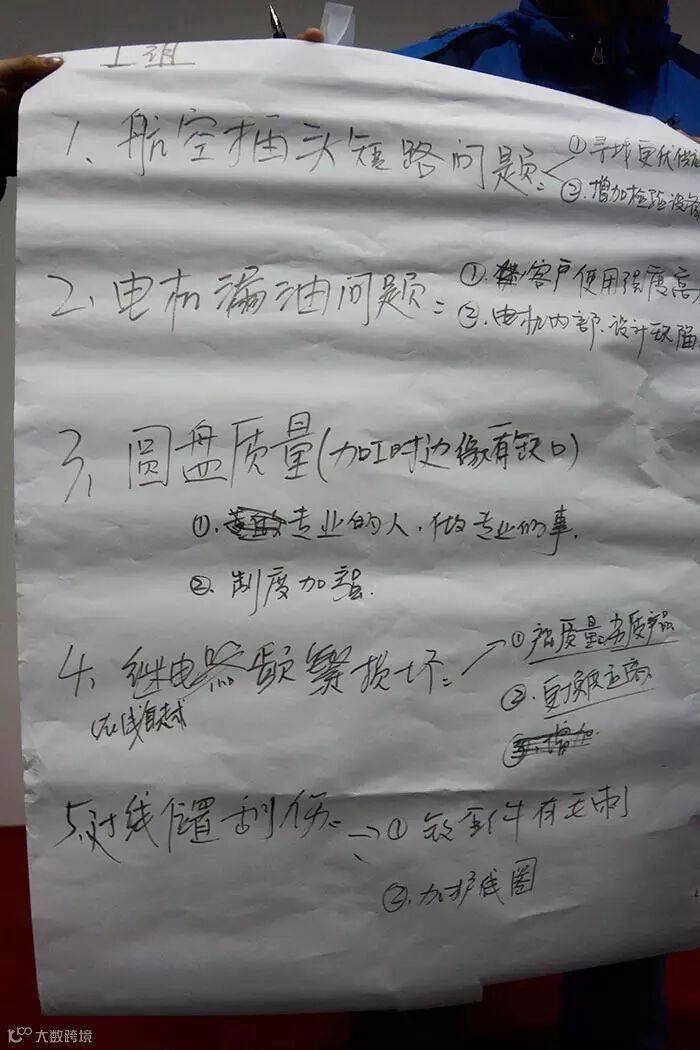 1组
1、航空插头短路问题:
①寻找更优供应
②.增加检验设备
2、电机漏油问题:
①.客户使用强度高,
②.电机内部.设计缺陷
3、圆盘质量(加工时边缘有缺口)
①.专业的人.做专业的事.
②.制度加强.
4、继电器频繁损坏:
→①产品质量:劣质产品
(在线
②.更换供应商
③.增加
5.过线位置刮伤:→①钣金件有毛刺
②.加护线圈
大数跨境